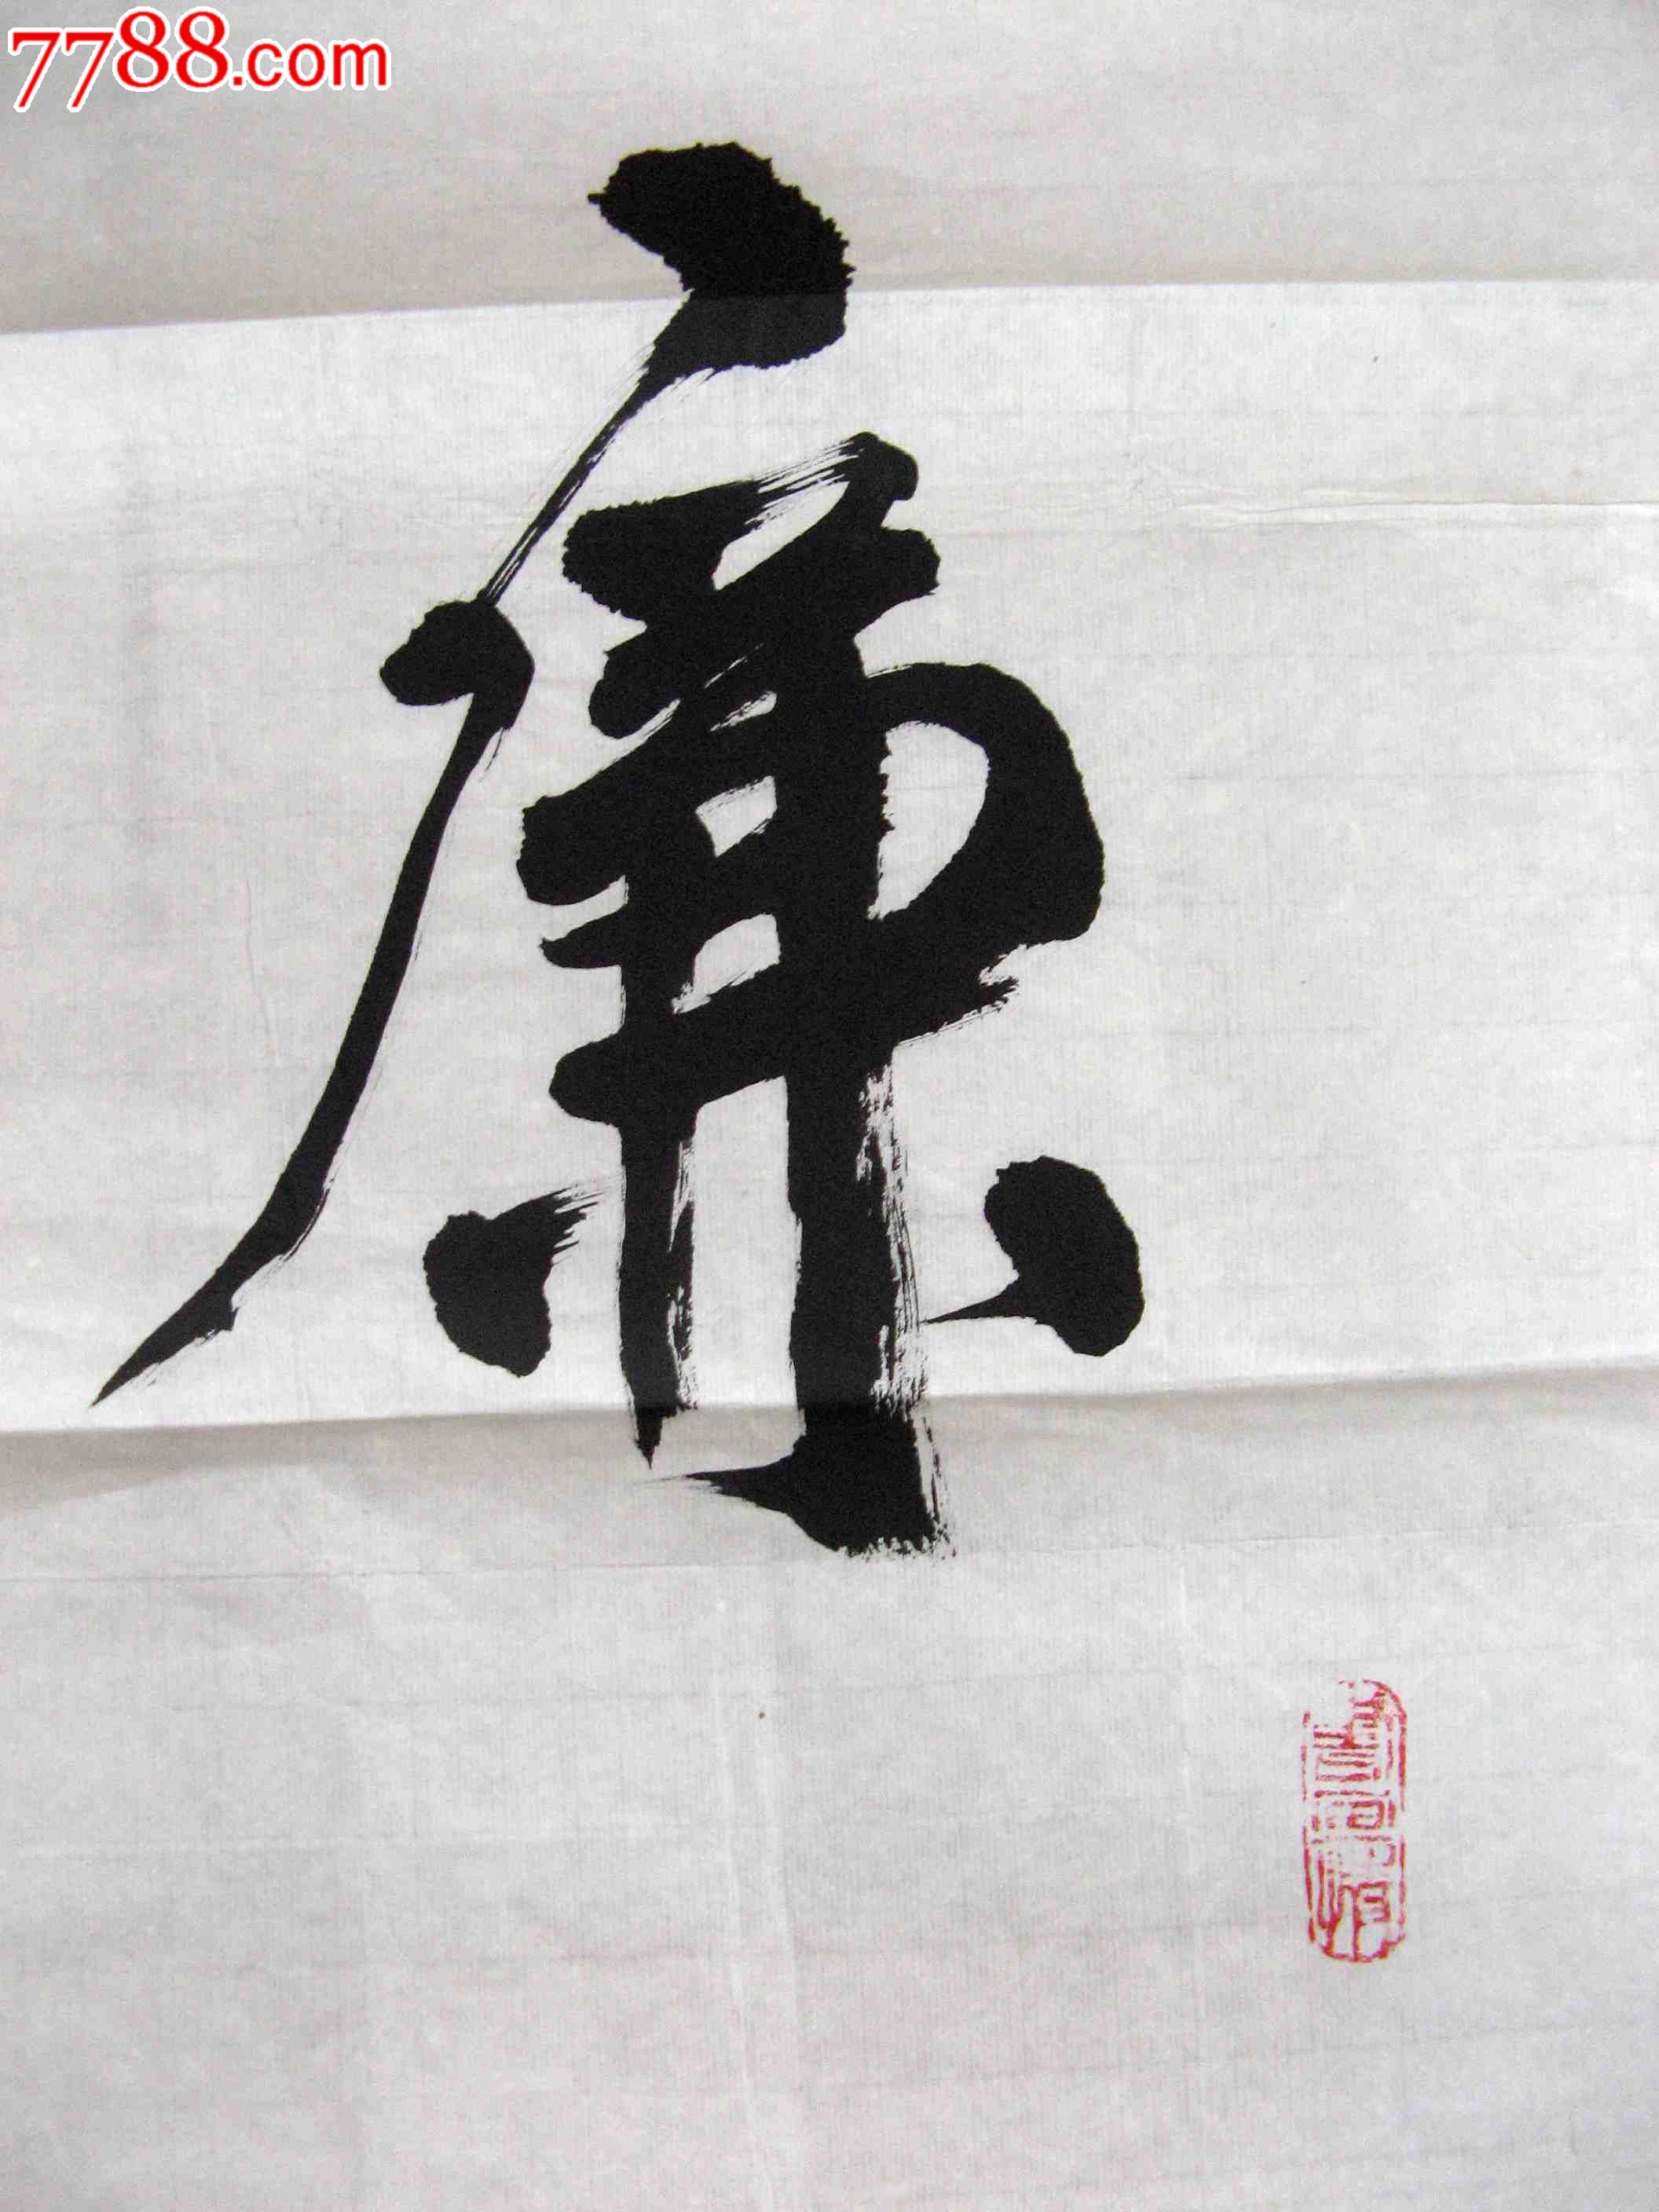 7788.com
廉